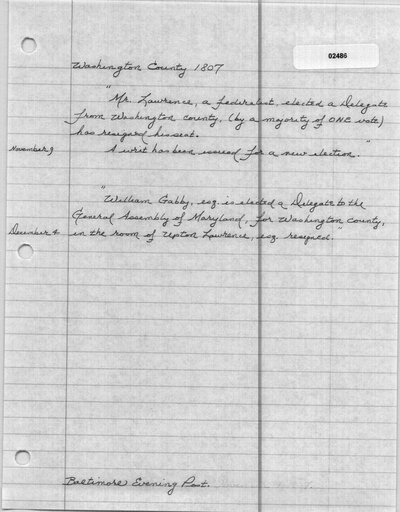 02486
Washington County 1807
"Mr. Lawrence, a federalist, elected a Delegate
from Washington county, (by a majority of ONE vote)
has resigned his seat.
November 9 A writ has been issued for a new election."
"William Gabby, esq. is elected a Delegate to the
General Assembly of Maryland, for Washington county,
December 4 in the room of Upton Lawrence, esq. resigned."
Baltimore Evening Post.